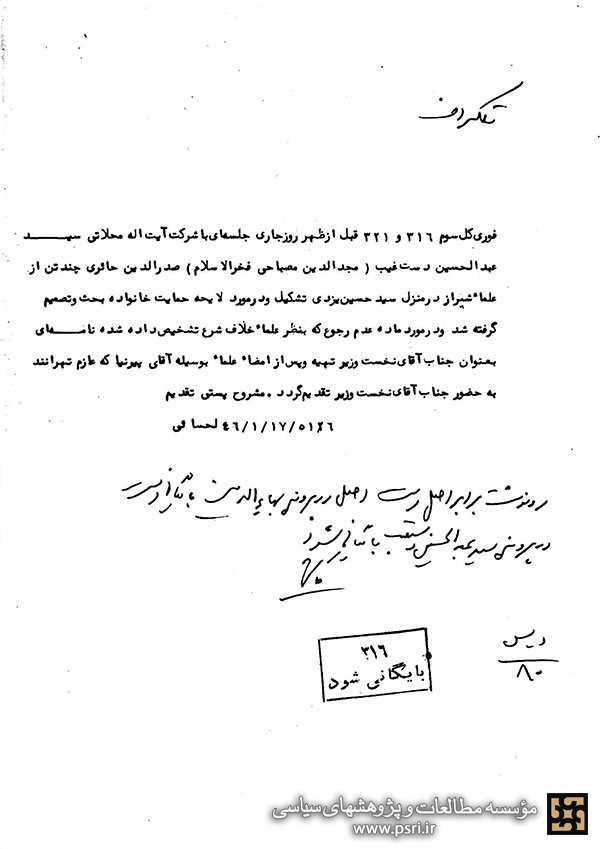 تلگراف
فوری کل سوم ۳۱۶ و ۳۲۱ قبل از ظهر روز جاری جلسه‌ای با شرکت آیت اله محلاتی سیــــد
عبدالحسین دست غیب ( مجدالدین مصباحی فخرالاسلام ) صدرالدین حائری چندتن از
علماء شیراز در منزل سید حسین یزدی تشکیل و در مورد لایحه حمایت خانواده بحث وتصمیم
گرفته شد و در مورد ماده عدم رجوع که بنظر علماء خلاف شرع تشخیص داده شده نامــه‌ای
بعنوان جناب آقای نخست وزیر تهیه و پس از امضاء علماء بوسیله آقای پیرنیا که عازم تهرانند
به حضور جناب آقای نخست وزیر تقدیم گردد . مشروح پستی تقدیم
۴۶/۱/۱۷/۵۱۲۶ لحسائی
رونوشت برابر اصل است اصل در پرونده بهاءالدین بایگانی
در پرونده سید عبدالحسین دستغیب بایگانی شود
۳۱۶
بایگانی شود
۸۰
مؤسسه مطالعات و پژوهشهای سیاسی
www.psri.ir